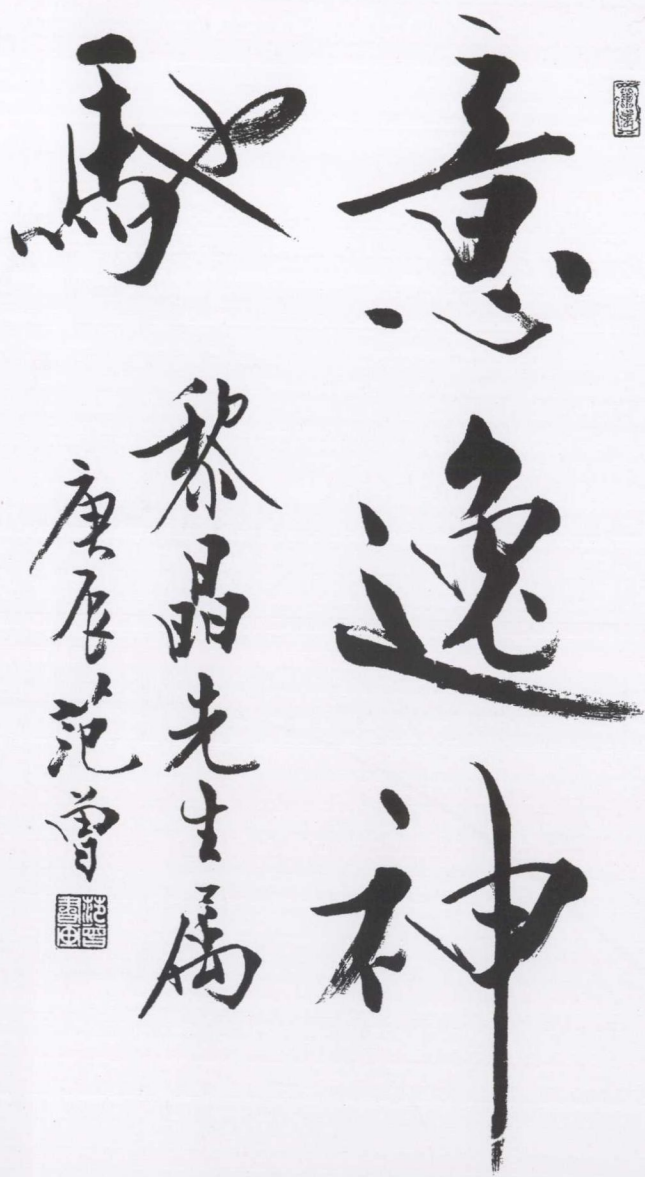 意逸神
馳
黎晶先生属
庚辰范曾